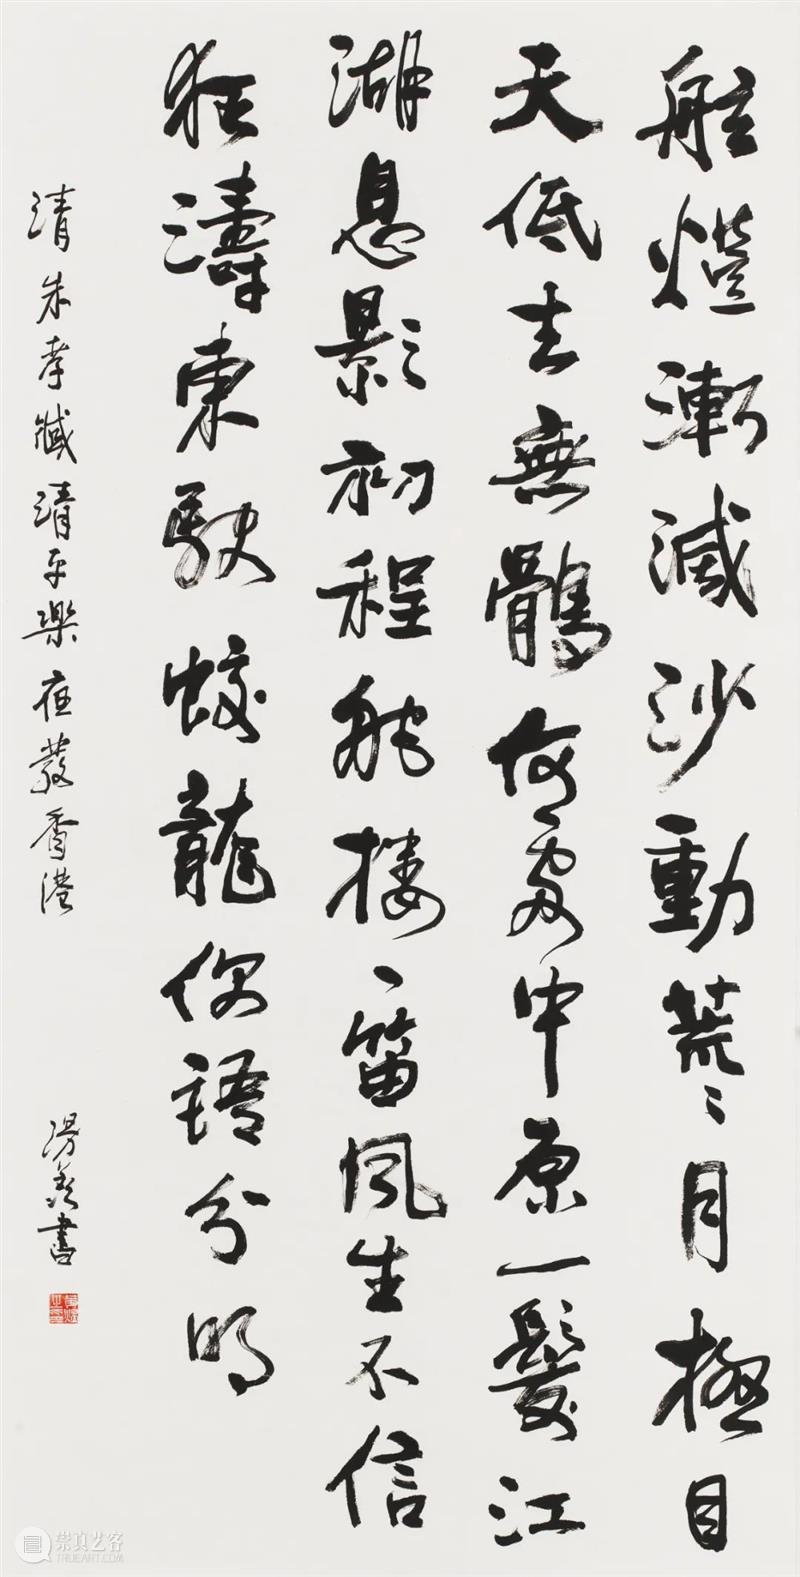 舷燈漸滅沙動荒〻月極目
天低去無鶻何處中原一髮江
湖息影初程舵樓一笛風生不信
狂濤東駛蛟龍你語分明
清朱孝臧清平樂夜發香港
書
崇真艺客
TRUEART.COM